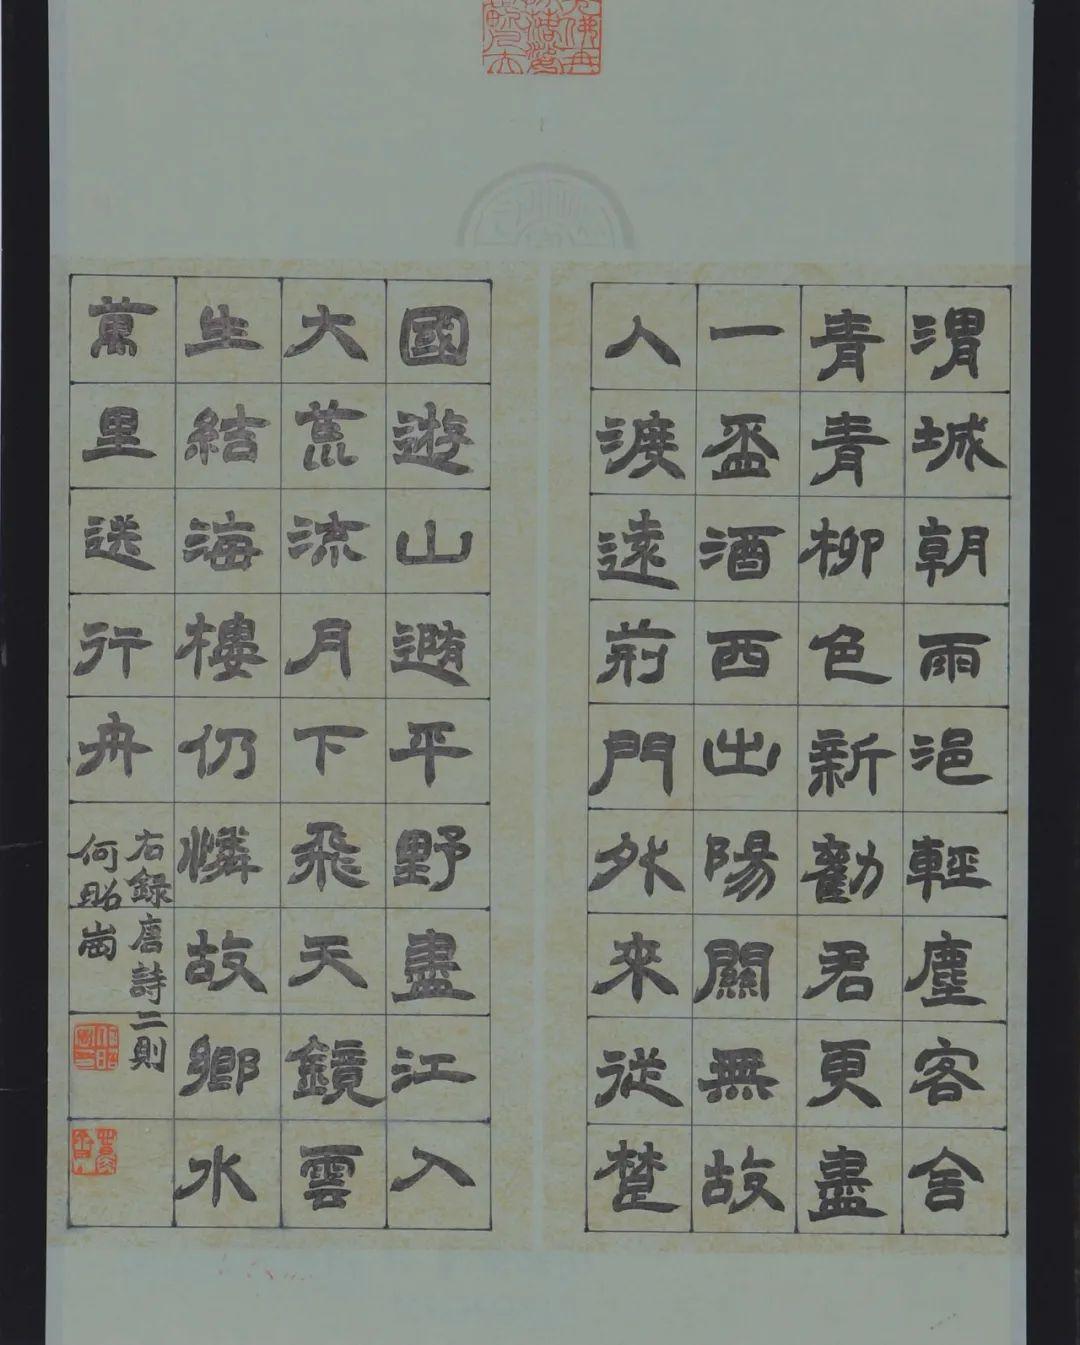 渭城朝雨浥輕塵客舍
青青柳色新勸君更盡
一盃酒西出陽關無故
人渡遠荊門外來從楚
國遊山隨平野盡江入
大荒流月下飛天鏡雲
生結海樓仍憐故鄉水
萬里送行舟
右錄唐詩二則
何昭崗